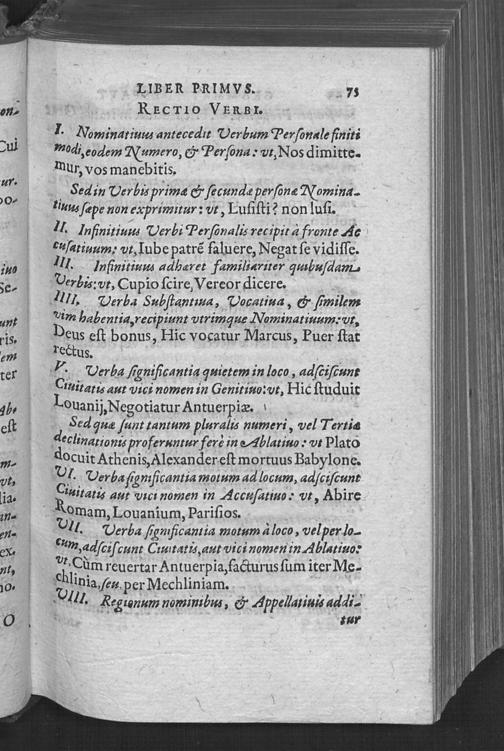 LIBER PRIMVS. 75
RECTIO VERBI.
I. Nominatiuus antecedit Verbum Personale finiti
modi, eodem Numero, & Persona: vt, Nos dimitte-
mur, vos manebitis.
Sed in Verbis primæ & secundæ personæ Nomina-
tiuus sæpe non exprimitur: vt, Lusisti? non lusi.
II. Infinitiuus Verbi Personalis recipit à fronte Ac
cusatiuum: vt, Iube patrē saluere, Negat se vidisse.
III. Infinitiuus adhæret familiariter quibusdam
Verbis: vt, Cupio scire, Vereor dicere.
IIII. Verba Substantiua, Vocatiua, & similem
vim habentia, recipiunt vtrimque Nominatiuum: vt,
Deus est bonus, Hic vocatur Marcus, Puer stat
rectus.
V. Verba significantia quietem in loco, adsciscunt
Ciuitatis aut vici nomen in Genitiuo: vt, Hic studuit
Louanij, Negotiatur Antuerpiæ.
Sed quæ sunt tantum pluralis numeri, vel Tertiæ
declinationis proferuntur ferè in Ablatiuo: vt Plato
docuit Athenis, Alexander est mortuus Babylone.
VI. Verba significantia motum ad locum, adsciscunt
Ciuitatis aut vici nomen in Accusatiuo: vt, Abire
Romam, Louanium, Parisios.
VII. Verba significantia motum à loco, vel per lo-
cum, adsciscunt Ciuitatis, aut vici nomen in Ablatiuo:
vt, Cùm reuertar Antuerpia, facturus sum iter Me-
chlinia, seu, per Mechliniam.
VIII. Regionum nominibus, & Appellatiuis addi-
tur